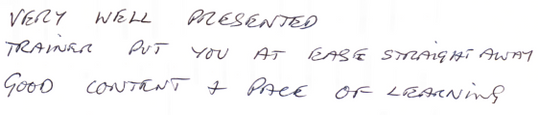 VERY WELL PRESENTED
TRAINER PUT YOU AT EASE STRAIGHT AWAY
GOOD CONTENT & PACE OF LEARNING